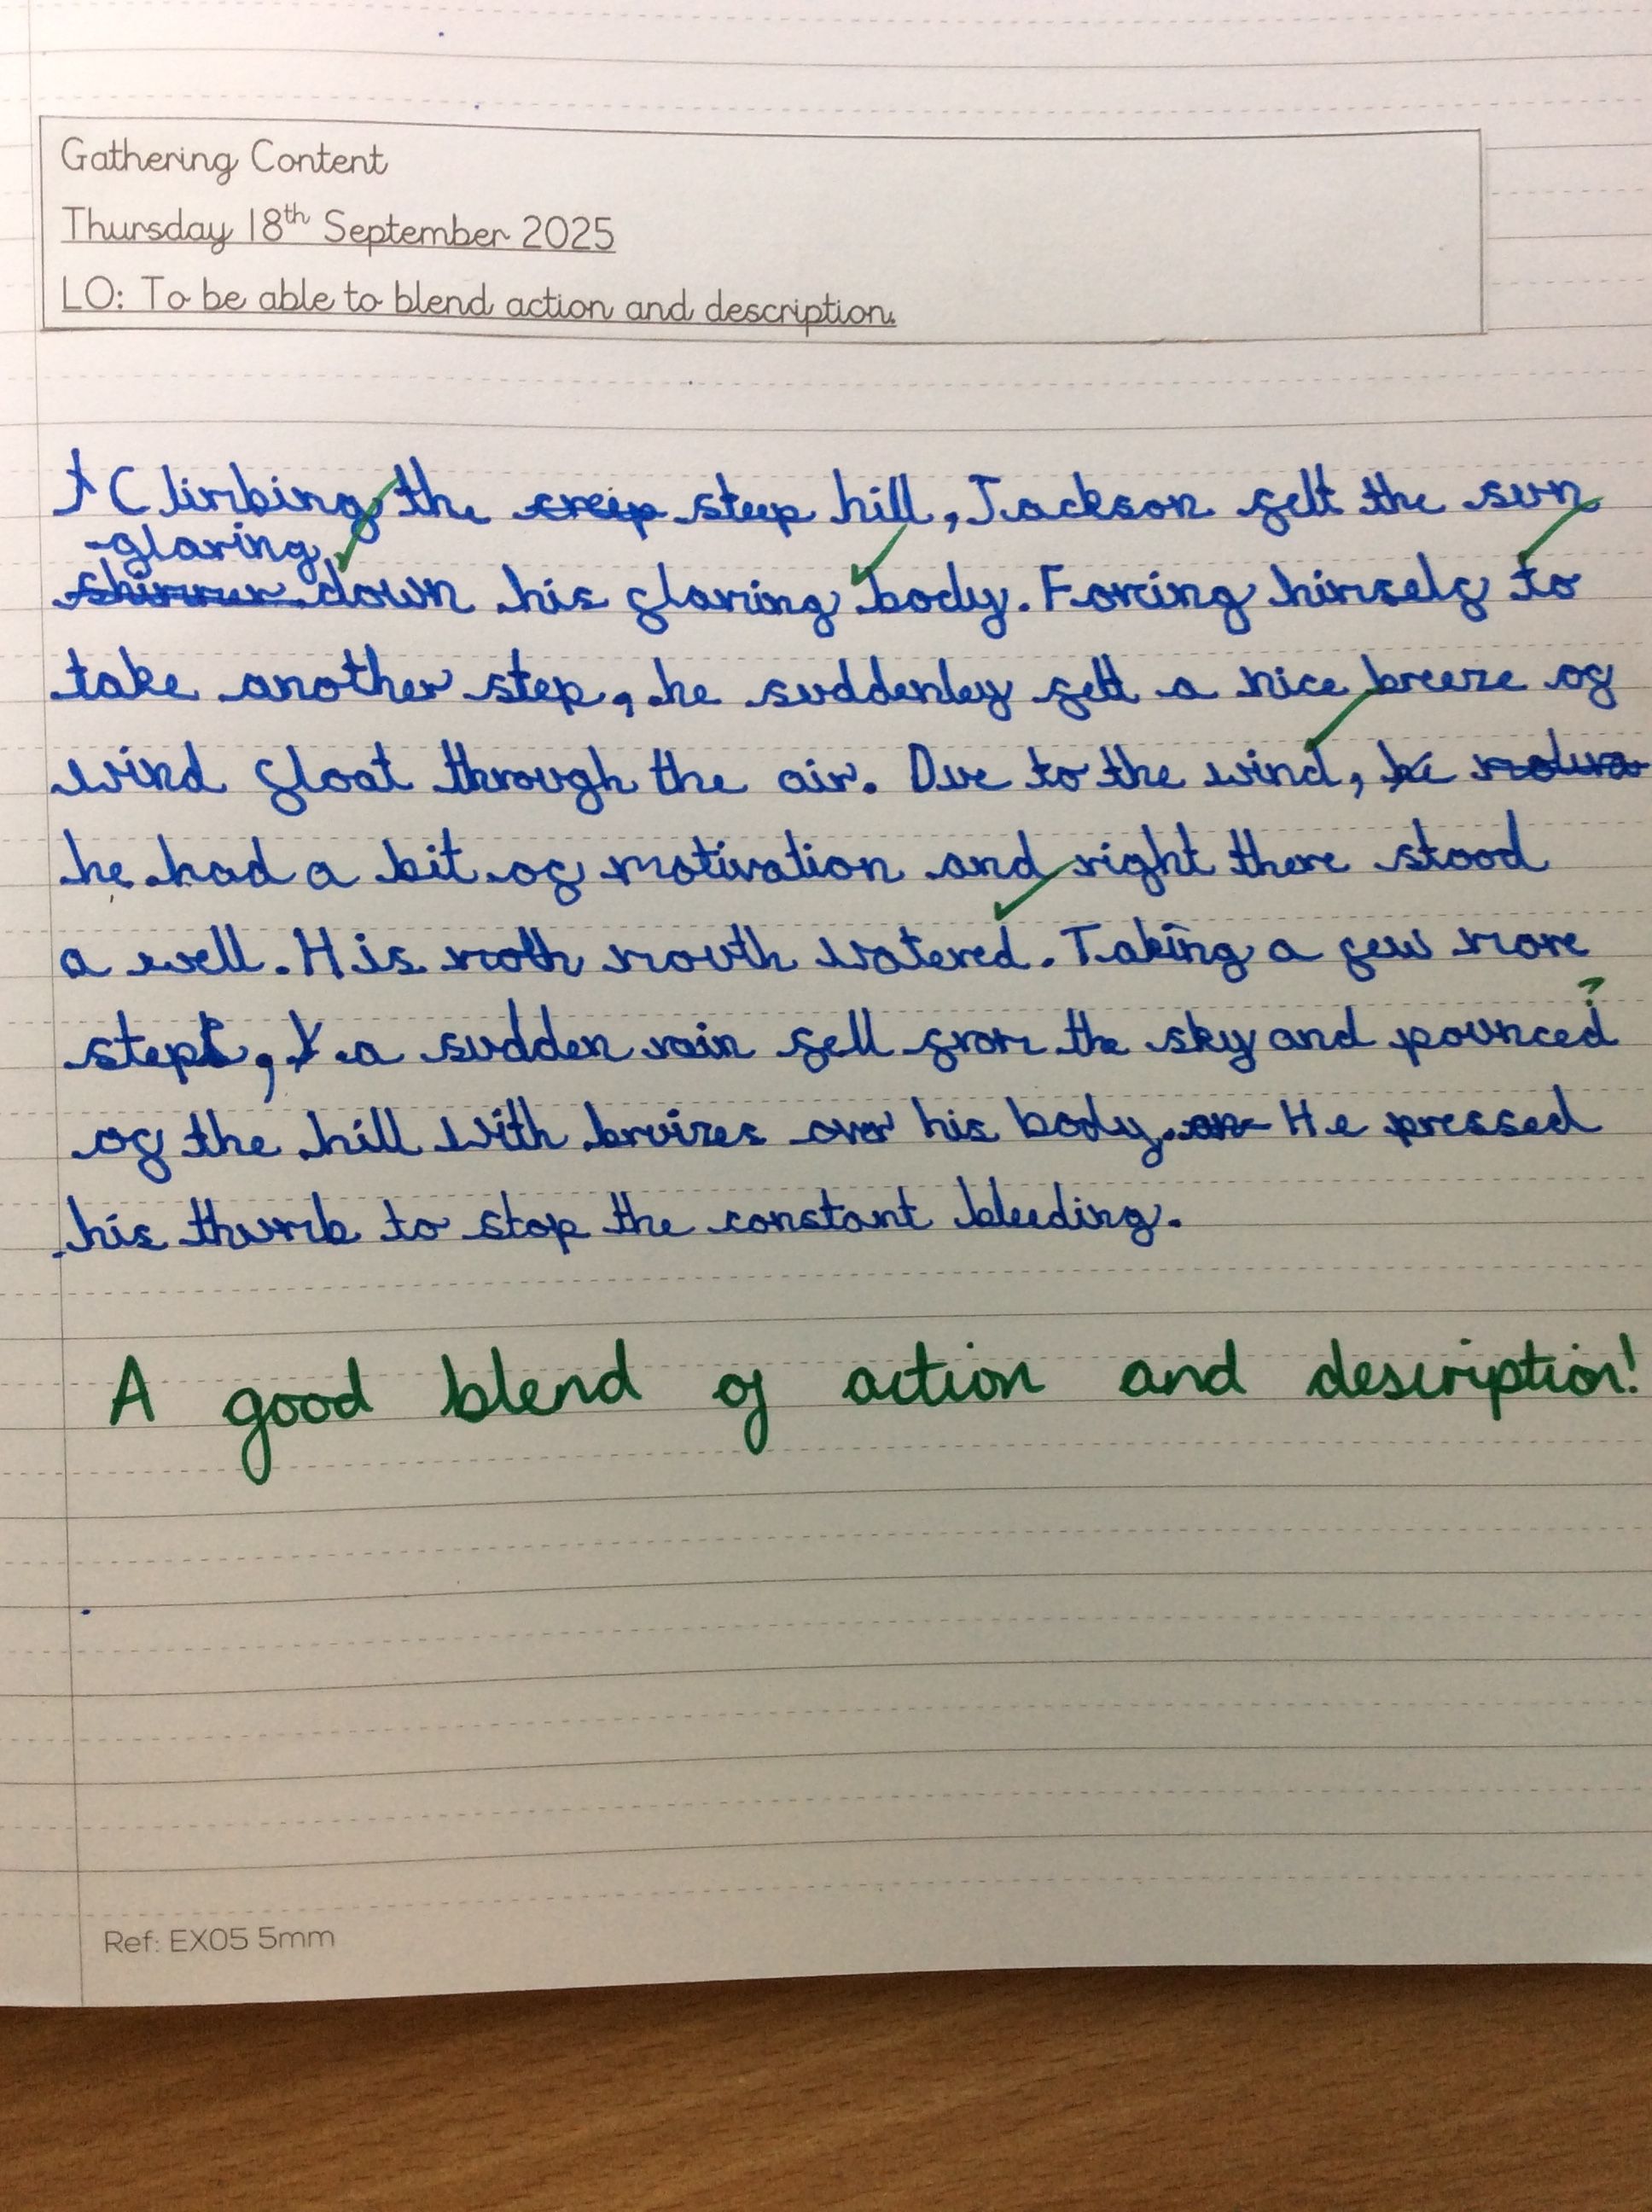 Gathering Content
Thursday 18th September 2025
LO: To be able to blend action and description.
Climbing the creep steep hill, Jackson felt the sun
glaring
down his glaring body. Forcing himself to
take another step, he suddenley felt a nice breeze of
wind float through the air. Due to the wind, he
he had a bit of motivation and right there stood
a well. His moth mouth watered. Taking a few more
steps, a sudden rain fell from the sky and pounced
?
of the hill with bruizes over his body. on He pressed
his thumb to stop the constant bleeding.
A good blend of action and description!
Ref: EX05 5mm